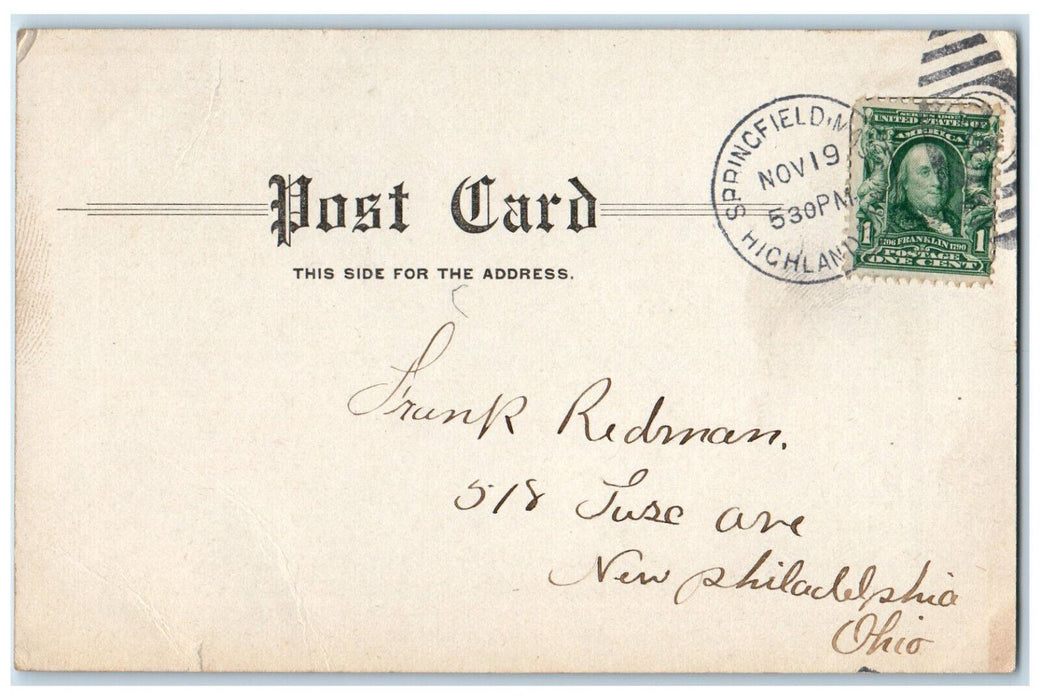 SPRINGFIELD, MA
NOV 19
530 PM
HIGHLAND
SERIES 1902
UNITED STATES OF
AMERICA
1 1
1706 FRANKLIN 1790
POSTAGE
ONE CENT
Post Card
THIS SIDE FOR THE ADDRESS.
Frank Redman.
518 Tusc ave
New philadelphia
Ohio